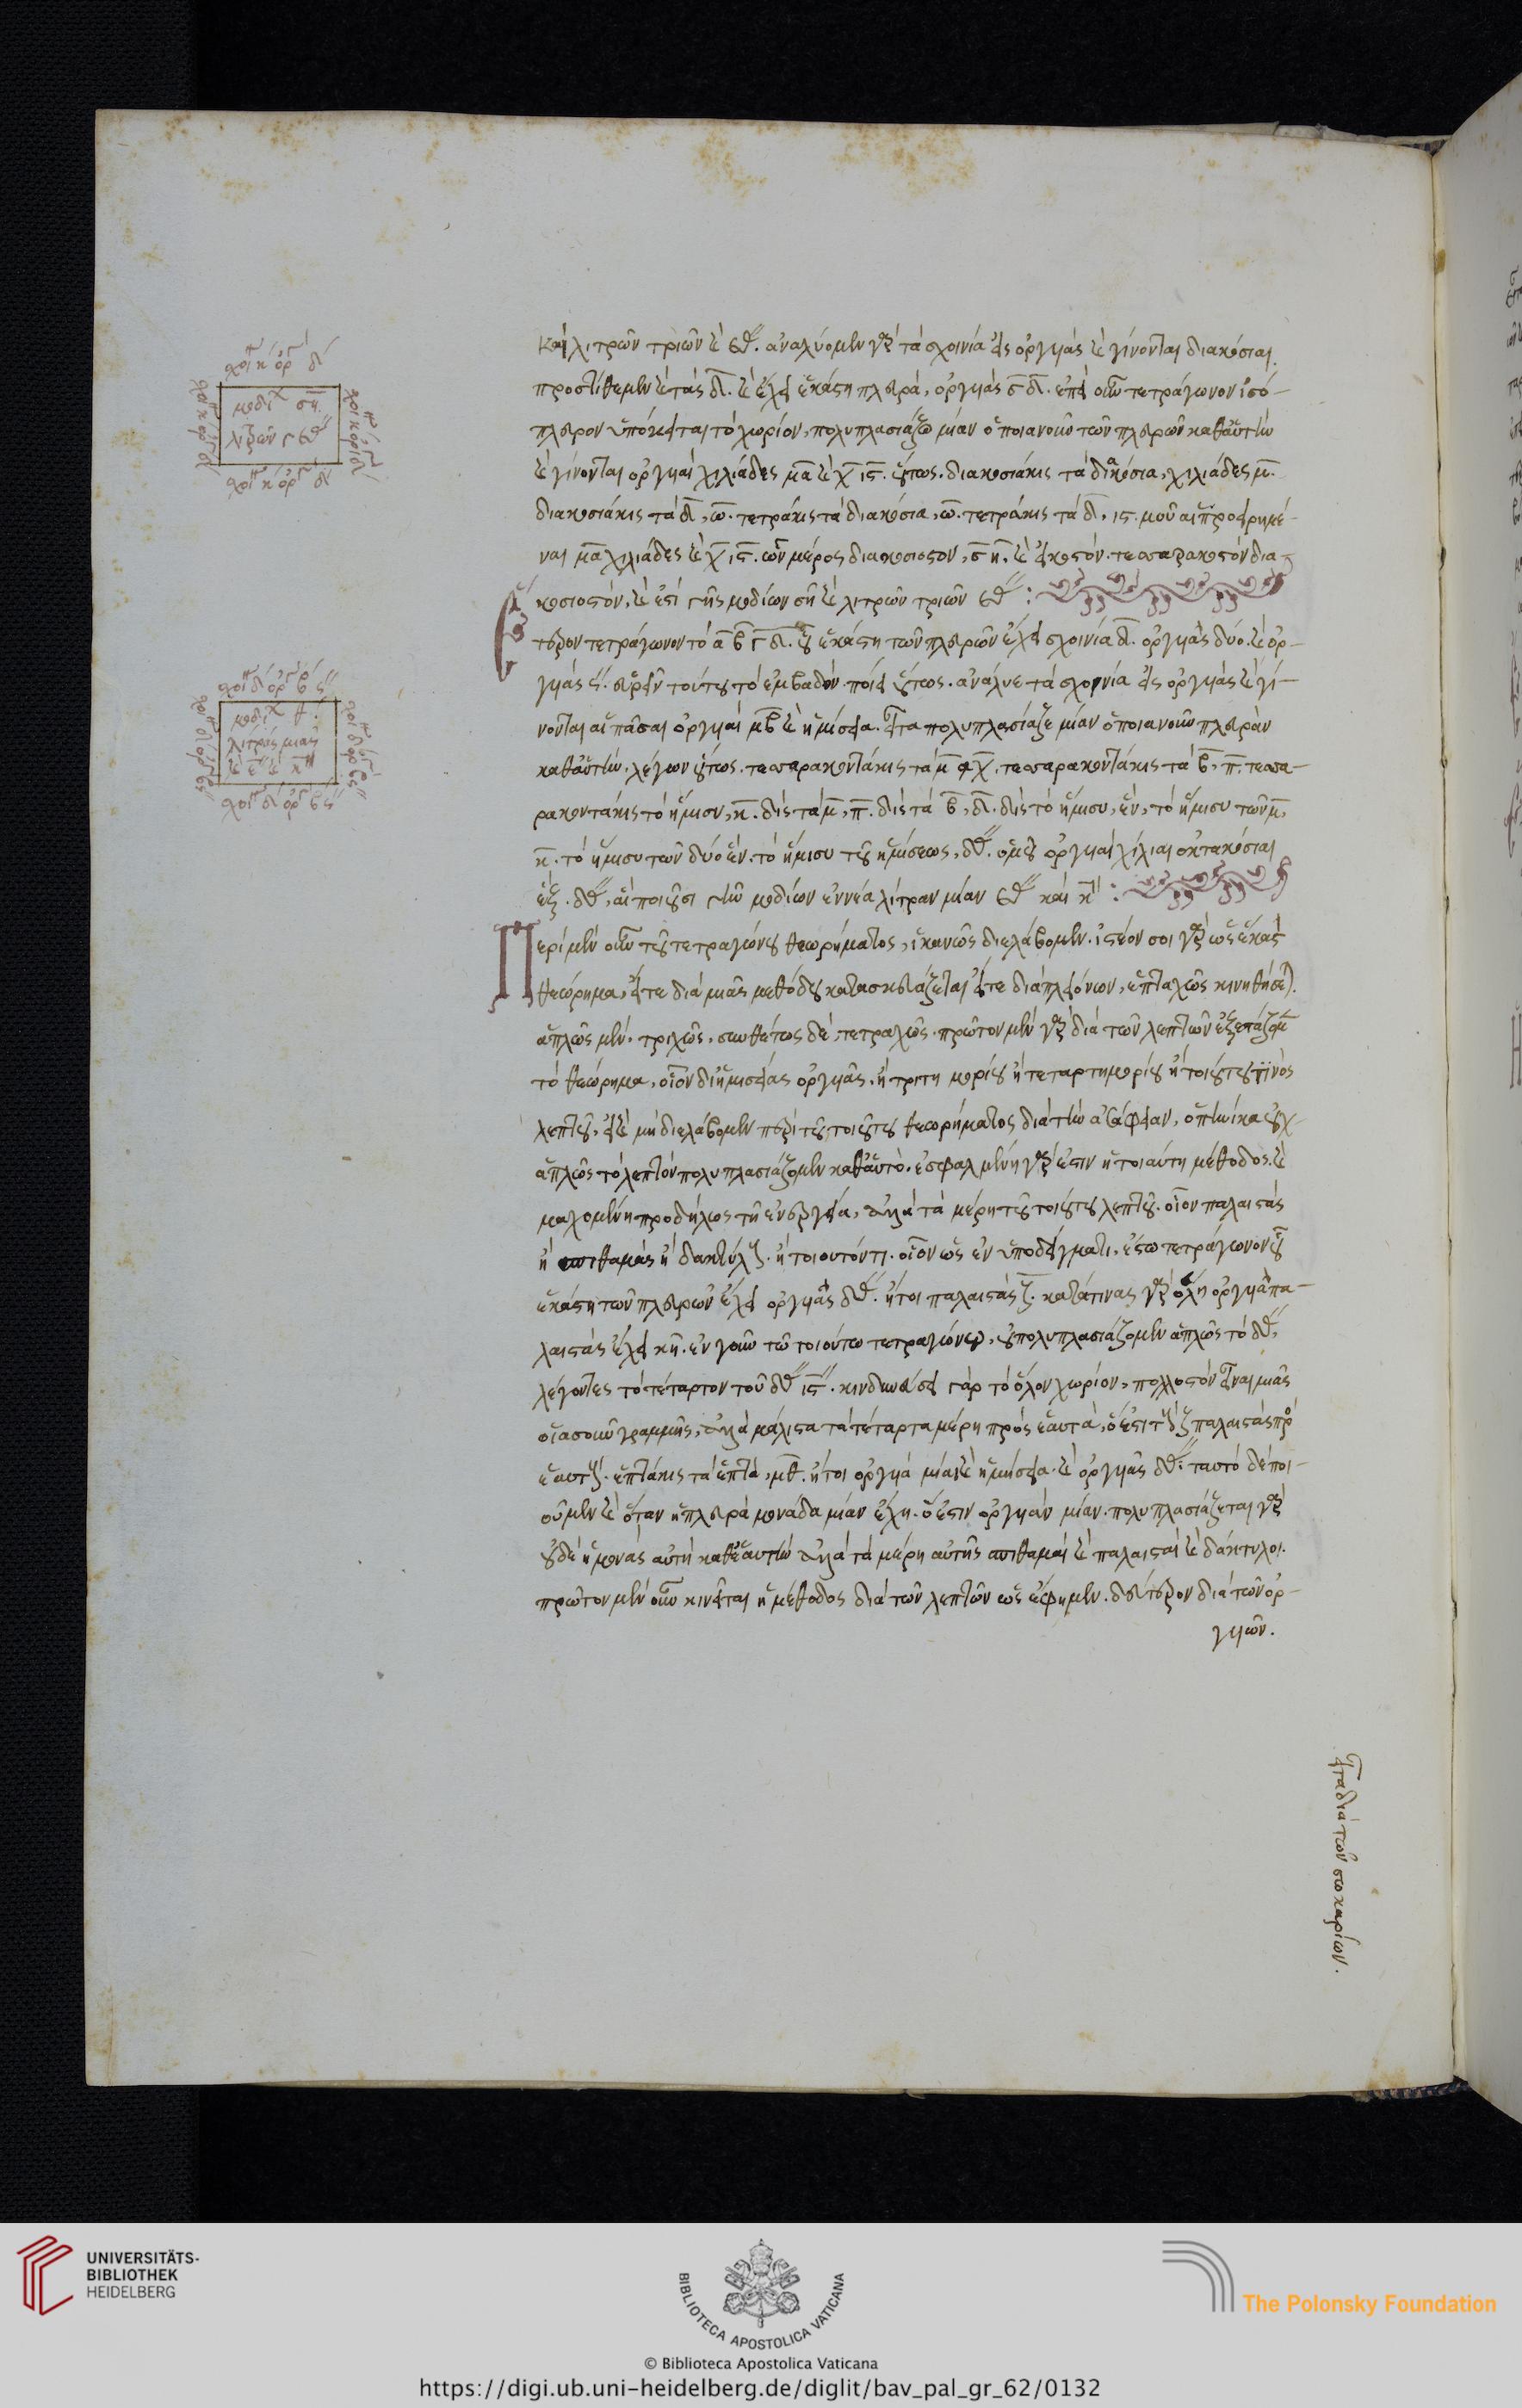 καὶ λιτρῶν τριῶν καὶ
ἀναλύομεν γὰρ τὰ σχοινία εἰς ὀργυιὰς καὶ γίνονται διακόσιαι.
προστίθεμεν καὶ τὰς δ. καὶ ἔχει ἑκάστη πλευρὰ, ὀργυιὰς σδ. ἐπεὶ οὖν τετράγωνον ἰσό-
πλευρον ὑπόκειται τὸ χωρίον, πολυπλασιάζω μίαν ὁποιανοῦν τῶν πλευρῶν καθ' αὑτὴν
καὶ γίνονται ὀργυιαὶ χιλιάδες μα καὶ χις. οὕτως. διακοσιάκις τὰ διακόσια, χιλιάδες μ.
διακοσιάκις τὰ δ, ω. τετράκις τὰ διακόσια, ω. τετράκις τὰ δ, ις. ὁμοῦ αἱ προειρημέ-
ναι μα χιλιάδες καὶ χις. ὧν μέρος διακοσιοστὸν, ση. καὶ εἰκοστὸν. τεσσαρακοστὸν δια-
κοσιοστόν, καὶ ἔστι γῆς μοδίων ση καὶ λιτρῶν τριῶν
τερον τετράγωνον τὸ α β γ δ. οὗ ἑκάστη τῶν πλευρῶν ἔχει σχοινία δ. ὀργυιὰς δύο. καὶ ὀρ-
γυιᾶς ς. εὑρεῖν τούτου τὸ ἐμβαδόν. ποίει οὕτως. ἀνάλυε τὰ σχοινία εἰς ὀργυιὰς καὶ γί-
νονται αἱ πᾶσαι ὀργυιαὶ μβ καὶ ἡμίσεια. εἶτα πολυπλασίαζε μίαν ὁποιανοῦν πλευρὰν
καθ' αὑτὴν. λέγων οὕτως. τεσσαρακοντάκις τὰ μ αχ. τεσσαρακοντάκις τὰ β, π. τεσσα-
ρακοντάκις τὸ ἥμισυ, κ. δὶς τὰ μ, π. δὶς τὰ β, δ. δὶς τὸ ἥμισυ, ἕν, τὸ ἥμισυ τῶν μ,
κ. τὸ ἥμισυ τῶν δύο ἕν. τὸ ἥμισυ τοῦ ἡμίσεως, δ. ὁμοῦ ὀργυιαὶ χίλιαι ὀκτακόσιαι
ἓξ. δ, αἳ ποιοῦσι γῆν μοδίων ἐννέα λίτραν μίαν καὶ κ
Περὶ μὲν οὖν τοῦ τετραγώνου θεωρήματος, ἱκανῶς διελάβομεν. ἰστέον σοι γὰρ ὡς ἕκαστον
θεώρημα, εἴτε διὰ μιᾶς μεθόδου κατασκευάζεται εἴτε διὰ πλειόνων, ἑπταχῶς κινηθήσεται.
ἁπλῶς μὲν. τριχῶς. συνθέτως δὲ, τετραχῶς. πρῶτον μὲν γὰρ διὰ τῶν λεπτῶν ἐξετάζομεν
τὸ θεώρημα, οἷον δι' ἡμισείας ὀργυιᾶς. ἢ τριτημορίου ἢ τεταρτημορίου ἢ τοιούτου τινὸς
λεπτοῦ, εἰ καὶ μὴ διελάβομεν περὶ τοῦ τοιούτου θεωρήματος διὰ τὴν ἀσάφειαν, ὁπηνίκα οὐχ
ἁπλῶς τὸ λεπτὸν πολυπλασιάζομεν καθ' αὑτὸ. ἐσφαλμένη γάρ ἐστιν ἡ τοιαύτη μέθοδος. καὶ
μαχομένη προδήλως τῇ ἐνεργεία, ἀλλὰ τὰ μέρη τοῦ τοιούτου λεπτοῦ. οἷον παλαιστὰς
ἢ σπιθαμὰς ἢ δακτύλους. ἢ τοιουτόντι. οἷον ὡς ἐν ὑποδείγματι. ἔστω τετράγωνον οὗ
ἑκάστη τῶν πλευρῶν ἔχει ὀργυιᾶς δ. ἤτοι παλαιστὰς ζ. κατά τινας γὰρ ὅλη ὀργυιὰ πα-
λαιστὰς ἔχει κη. ἐν γοῦν τῷ τοιούτῳ τετραγώνῳ, οὐ πολυπλασιάζομεν ἁπλῶς τὸ δ,
λέγοντες τὸ τέταρτον τοῦ δ ις. κινδυνεύσει γὰρ τὸ ὅλον χωρίον, πολλοστὸν εἶναι μιᾶς
οἱασοῦν γραμμῆς, ἀλλὰ μάλιστα τὰ τέταρτα μέρη πρὸς ἑαυτὰ, ὅ ἐστι τὰς ζ παλαιστὰς πρὸς
ἑαυτὰς. ἑπτάκις τὰ ἑπτὰ, μθ. ἤτοι ὀργυιὰ μία καὶ ἡμίσεια. καὶ ὀργυιᾶς δ. ταυτὸ δὲ ποι-
οῦμεν καὶ ὅταν ἡ πλευρὰ μονάδα μίαν ἔχῃ. ὅ ἐστιν ὀργυιὰν μίαν. πολυπλασιάζεται γὰρ
οὐδὲ ἡ μονὰς αὐτὴ καθ' ἑαυτὴν ἀλλὰ τὰ μέρη αὐτῆς σπιθαμαὶ καὶ παλαισταὶ καὶ δάκτυλοι.
πρῶτον μὲν οὖν κινεῖται ἡ μέθοδος διὰ τῶν λεπτῶν ὡς ἔφημεν. δεύτερον διὰ τῶν ὀρ-
γυιῶν.
εἶτα διὰ τῶν σωκαρίων.
UNIVERSITÄTS-
BIBLIOTHEK
HEIDELBERG
BIBLIOTECA APOSTOLICA VATICANA
The Polonsky Foundation
© Biblioteca Apostolica Vaticana
https://digi.ub.uni-heidelberg.de/diglit/bav_pal_gr_62/0132